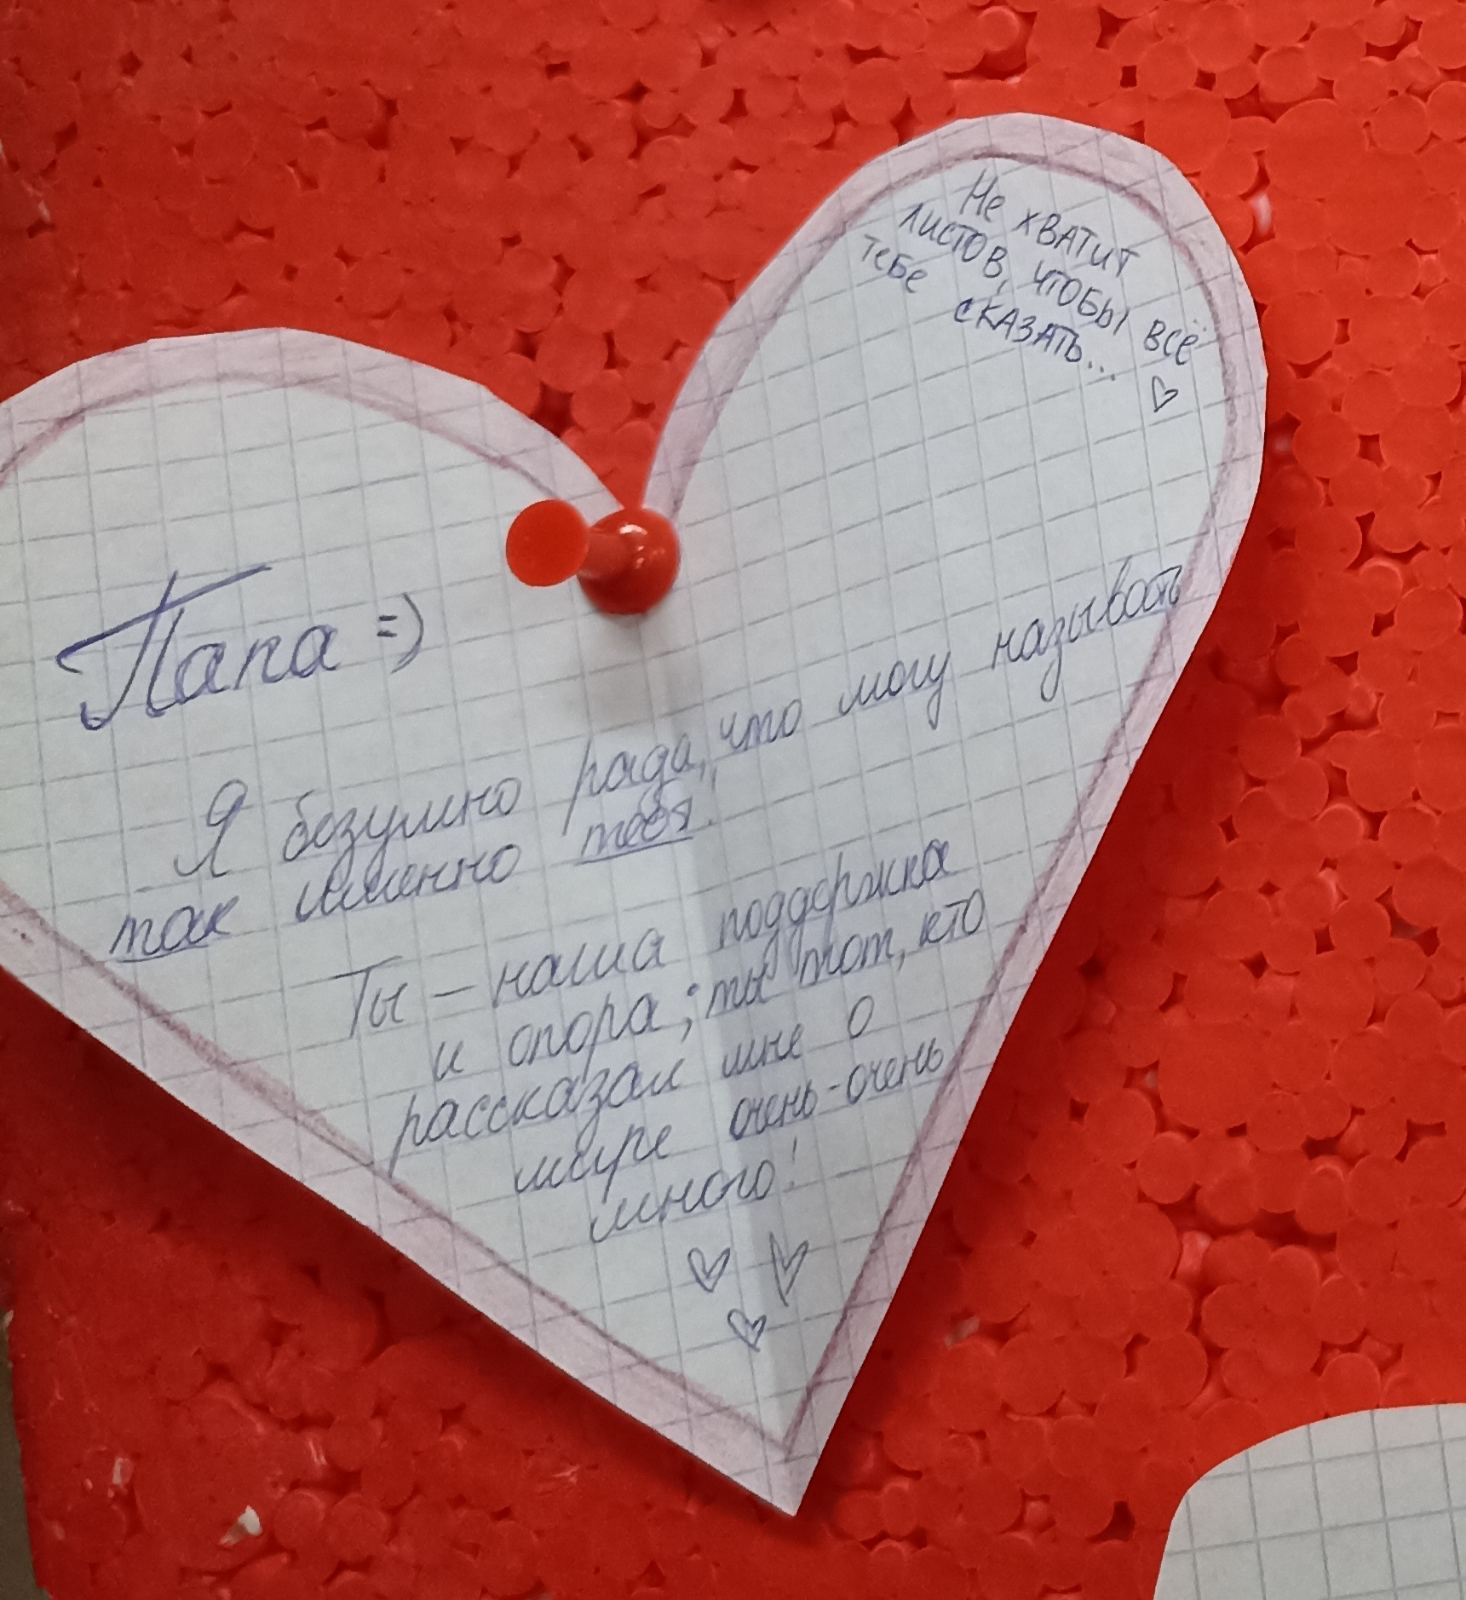 Не хватит
листов, чтобы всё
тебе сказать...
Папа =)
Я безумно рада, что могу называть
так именно тебя.
Ты – наша поддержка
и опора; ты тот, кто
рассказал мне о
мире очень-очень
много!